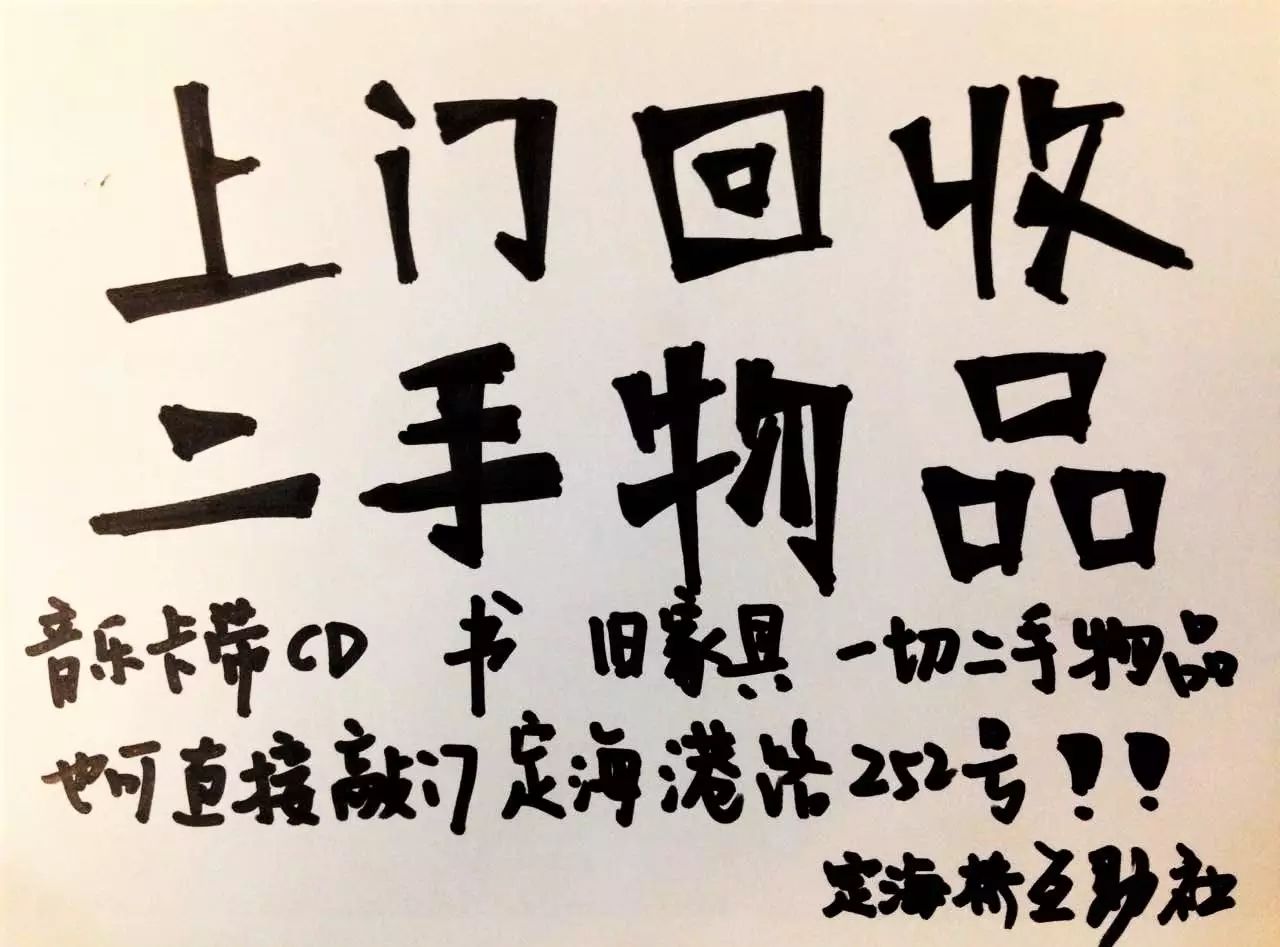 上门回收
二手物品
音乐卡带CD 书 旧家具 一切二手物品
也可直接敲门定海港路252号!!
定海桥互助社